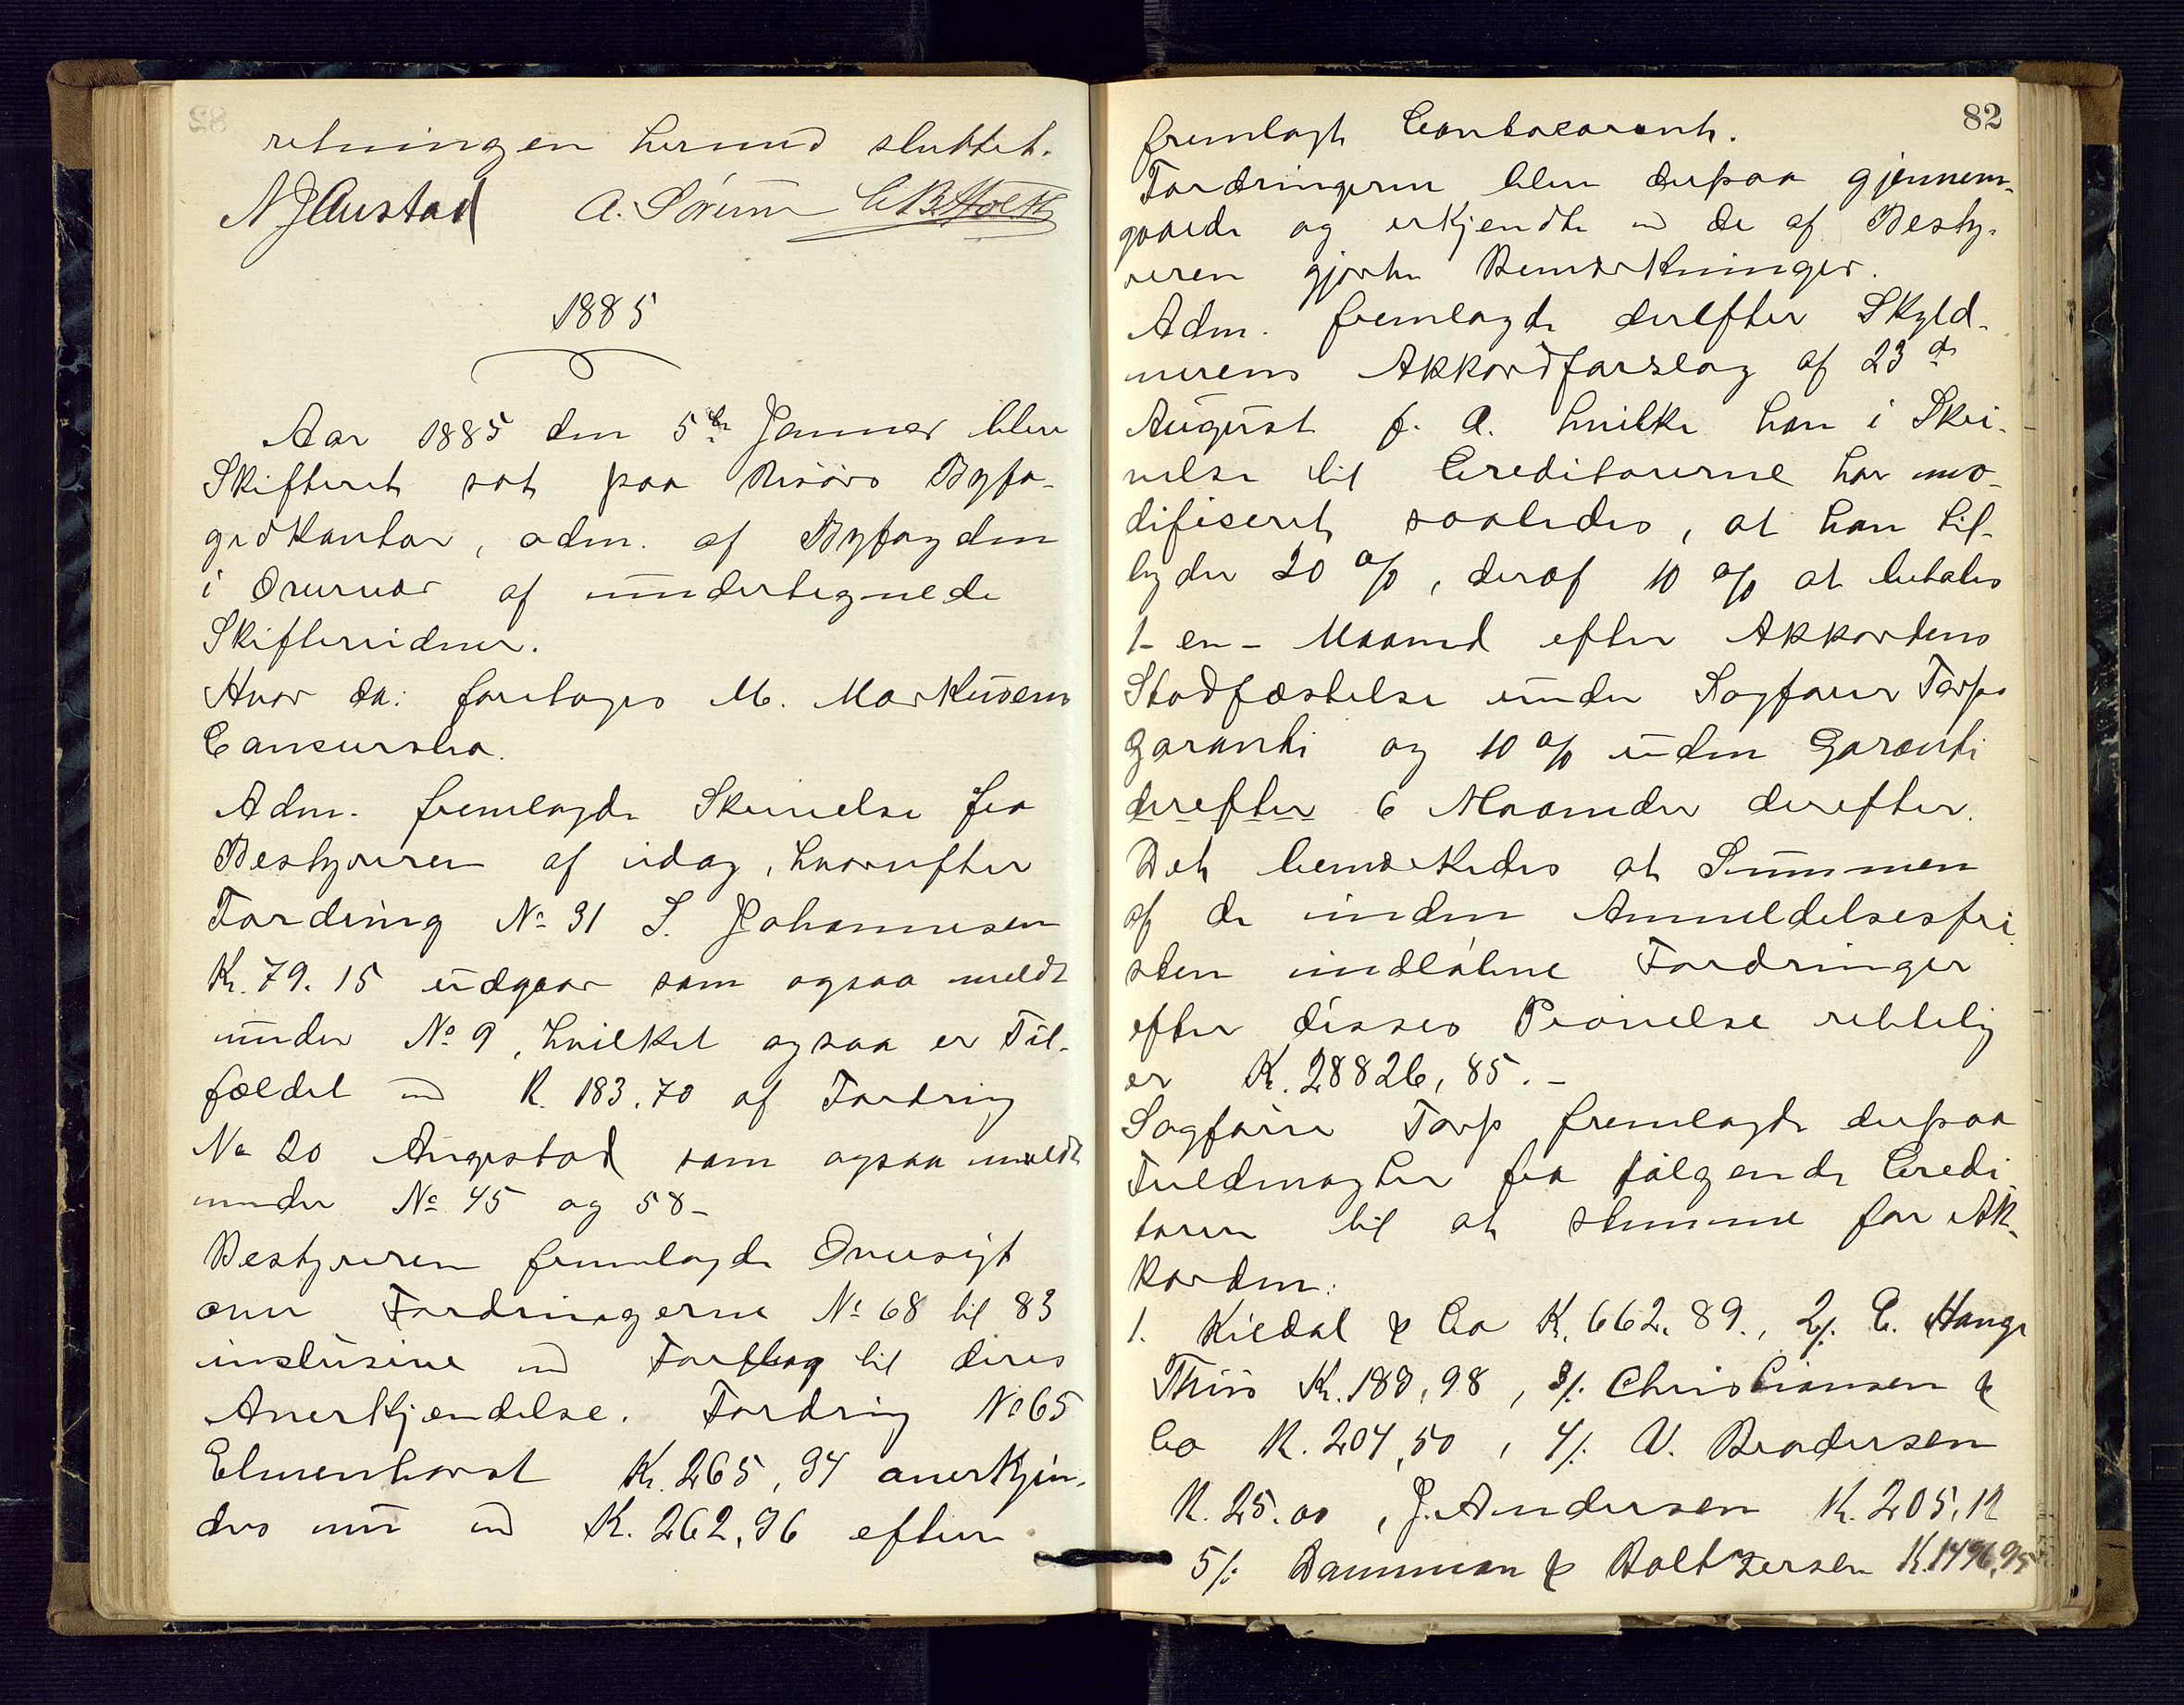 retningen hermed sluttet.
N J Austad A. Sørum C B Holth
1885
Aar 1885 den 5te Januar blev
Skifteret sat paa Risørs Byfo-
gedkontor, adm. af Byfogden
i Overvær af undertegnede
Skiftevidner.
Hvor da: foretoges M. Markusens
Concursbo.
Adm. fremlagde Skrivelse fra
Bestyreren af idag, hvorefter
Fordring No 31 S. Johannesen
K. 79.15 udgaar som ogsaa meldt
under No 9, hvilket ogsaa er Til-
fældet m K. 183.70 af Fordring
No 20 Angestad som ogsaa meldt
under No 45 og 58-
Bestyreren fremlagde Oversigt
over Fordringerne No 68 til 83
inclusive m Forslag til deres
Anerkjendelse. Fordring No 65
Elmenhorst K. 265,94 anerkjen-
des nu m K. 262,96 efter
82
fremlagt Contocorant.
Fordringerne blev derpaa gjennem-
gaaede og erkjendte m de af Besty-
reren gjorte Bemærkninger.
Adm. fremlagde derefter Skyld-
nerens Akkordforslag af 23de
August f. A. hvilke han i Skri-
velse til Creditorerne har mo-
dificeret saaledes, at han til-
byder 20 %, deraf 10 % at betales
1 - en - Maaned efter Akkordens
Stadfæstelse under Sagfører Torps
garanti og 10 % uden Garanti
derefter 6 Maaneder derefter.
Det bemærkedes at Summen
af de inden Anmeldelsesfri
sten indløbne Fordringer
efter disses Prøvelse rettelig
er K. 28826,85.-
Sagfører Torp fremlagde derpaa
Fuldmagter fra følgende Credi
torer til at stemme for Ak-
korden:
1. Kiedal & Co K. 662.89., 2/. C. Hauge
Thiis K. 183,98, 3/. Christiansen &
Co K. 204,50, 4/. V. Brodersen
K. 25.00, J. Andersen K. 205,12
5/. Damman & Boltzersen K. 1496,95